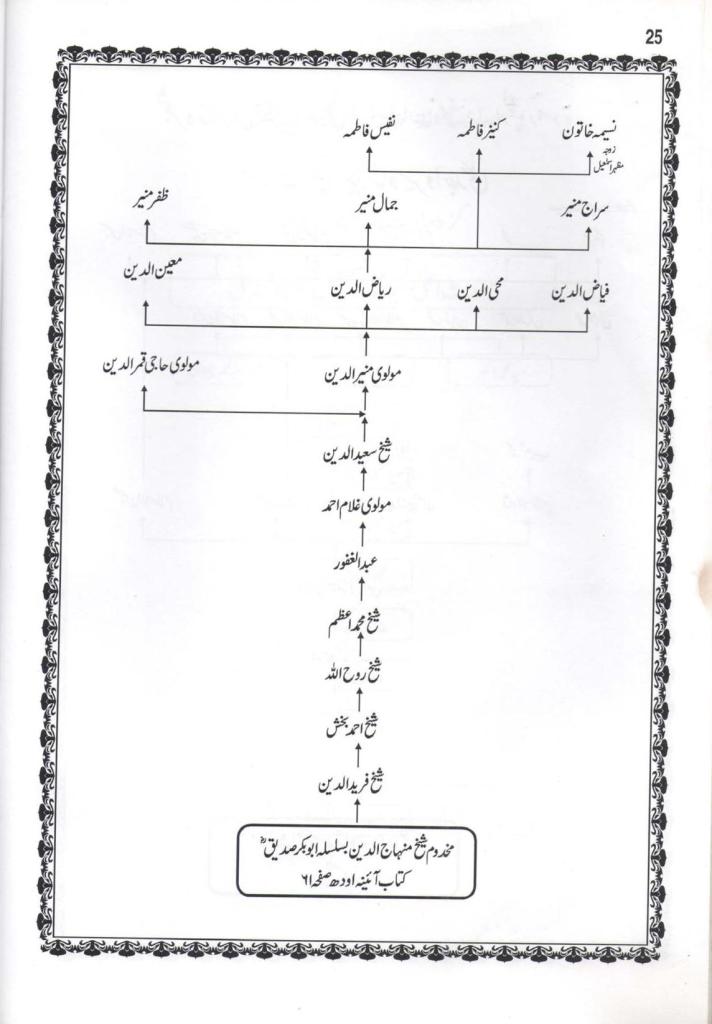 25
نسیمہ خاتون
کنیز فاطمہ
نفیس فاطمہ
زوجہ
مظہر اسمٰعیل
سراج منیر
جمال منیر
ظفر منیر
فیاض الدین
محی الدین
ریاض الدین
معین الدین
مولوی منیر الدین
مولوی حاجی قمر الدین
شیخ سعید الدین
مولوی غلام احمد
عبدالغفور
شیخ محمد اعظم
شیخ روح اللہ
شیخ احمد بخش
شیخ فرید الدین
مخدوم شیخ منہاج الدین بسلسلہ ابوبکر صدیقؓ
کتاب آئینہ اودھ صفحہ ۶۱